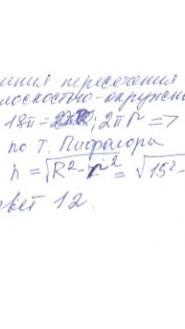 ния пересечения
лоскостью-окружн
18π = 2πr =>
по т. Пифагора
h = √R²-r² = √15²-
вет 12.